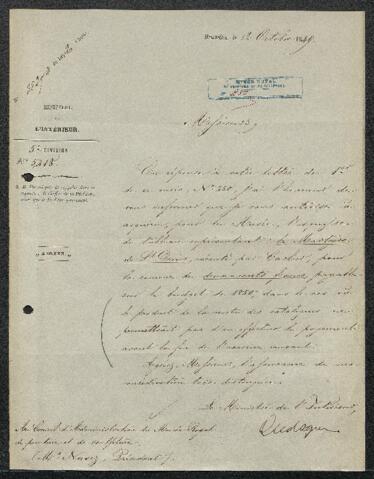 Bruxelles, le 12 Octobre 1849.
MINISTÈRE
DE
L'INTÉRIEUR.
5e DIVISION
No 5218.
MUSÉE ROYAL
Messieurs,
En réponse à votre lettre du 1er
de ce mois, No 220, j'ai l'honneur de
vous informer que je vous autorise à
acquérir, pour le Musée, l'esquisse
du tableau représentant le Martyre
de St pour
la somme de deux cents francs, payable
sur le budget de 1850, dans le cas où
le produit de la vente des catalogues ne
permettrait pas d'en effectuer le payement
avant la fin de l'exercice courant.
Agréez, Messieurs, l'assurance de ma
considération très distinguée.
Le Ministre de l'Intérieur,
Au Conseil d'Administration du Musée Royal
de peinture et de sculpture.
(Mr Navez, Président).